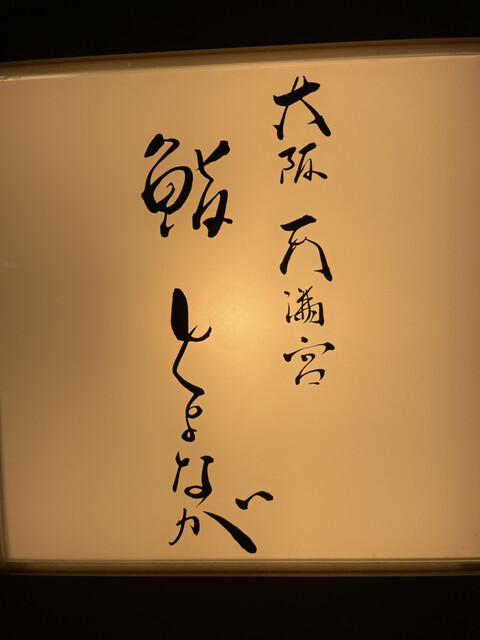 大阪 天満宮
鮨 とよなが